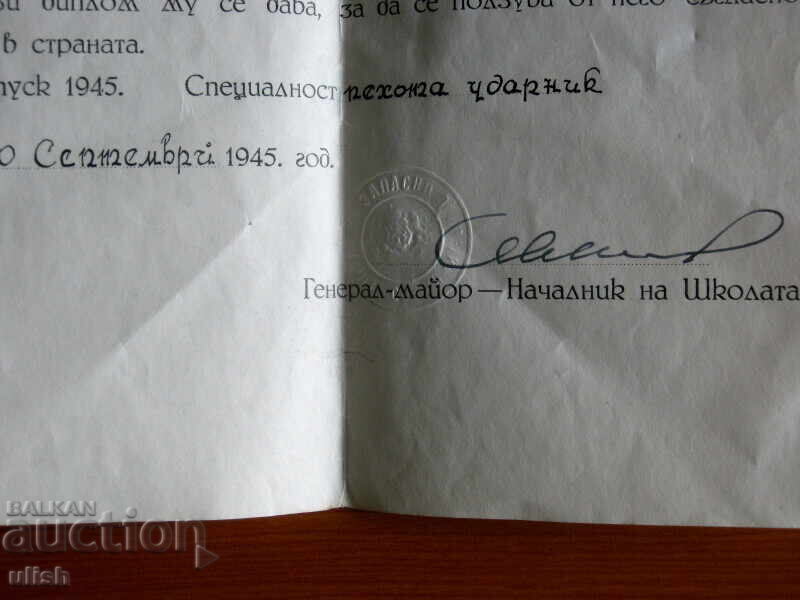 зи диплом му се дава, за да се ползува от него съгласно
в страната.
пуск 1945. Специалност пехота ударник
0 Септемврий 1945. год.
ЗАПАСНИ
Генерал-майор — Началник на Школата
BALKAN
auction
ulish